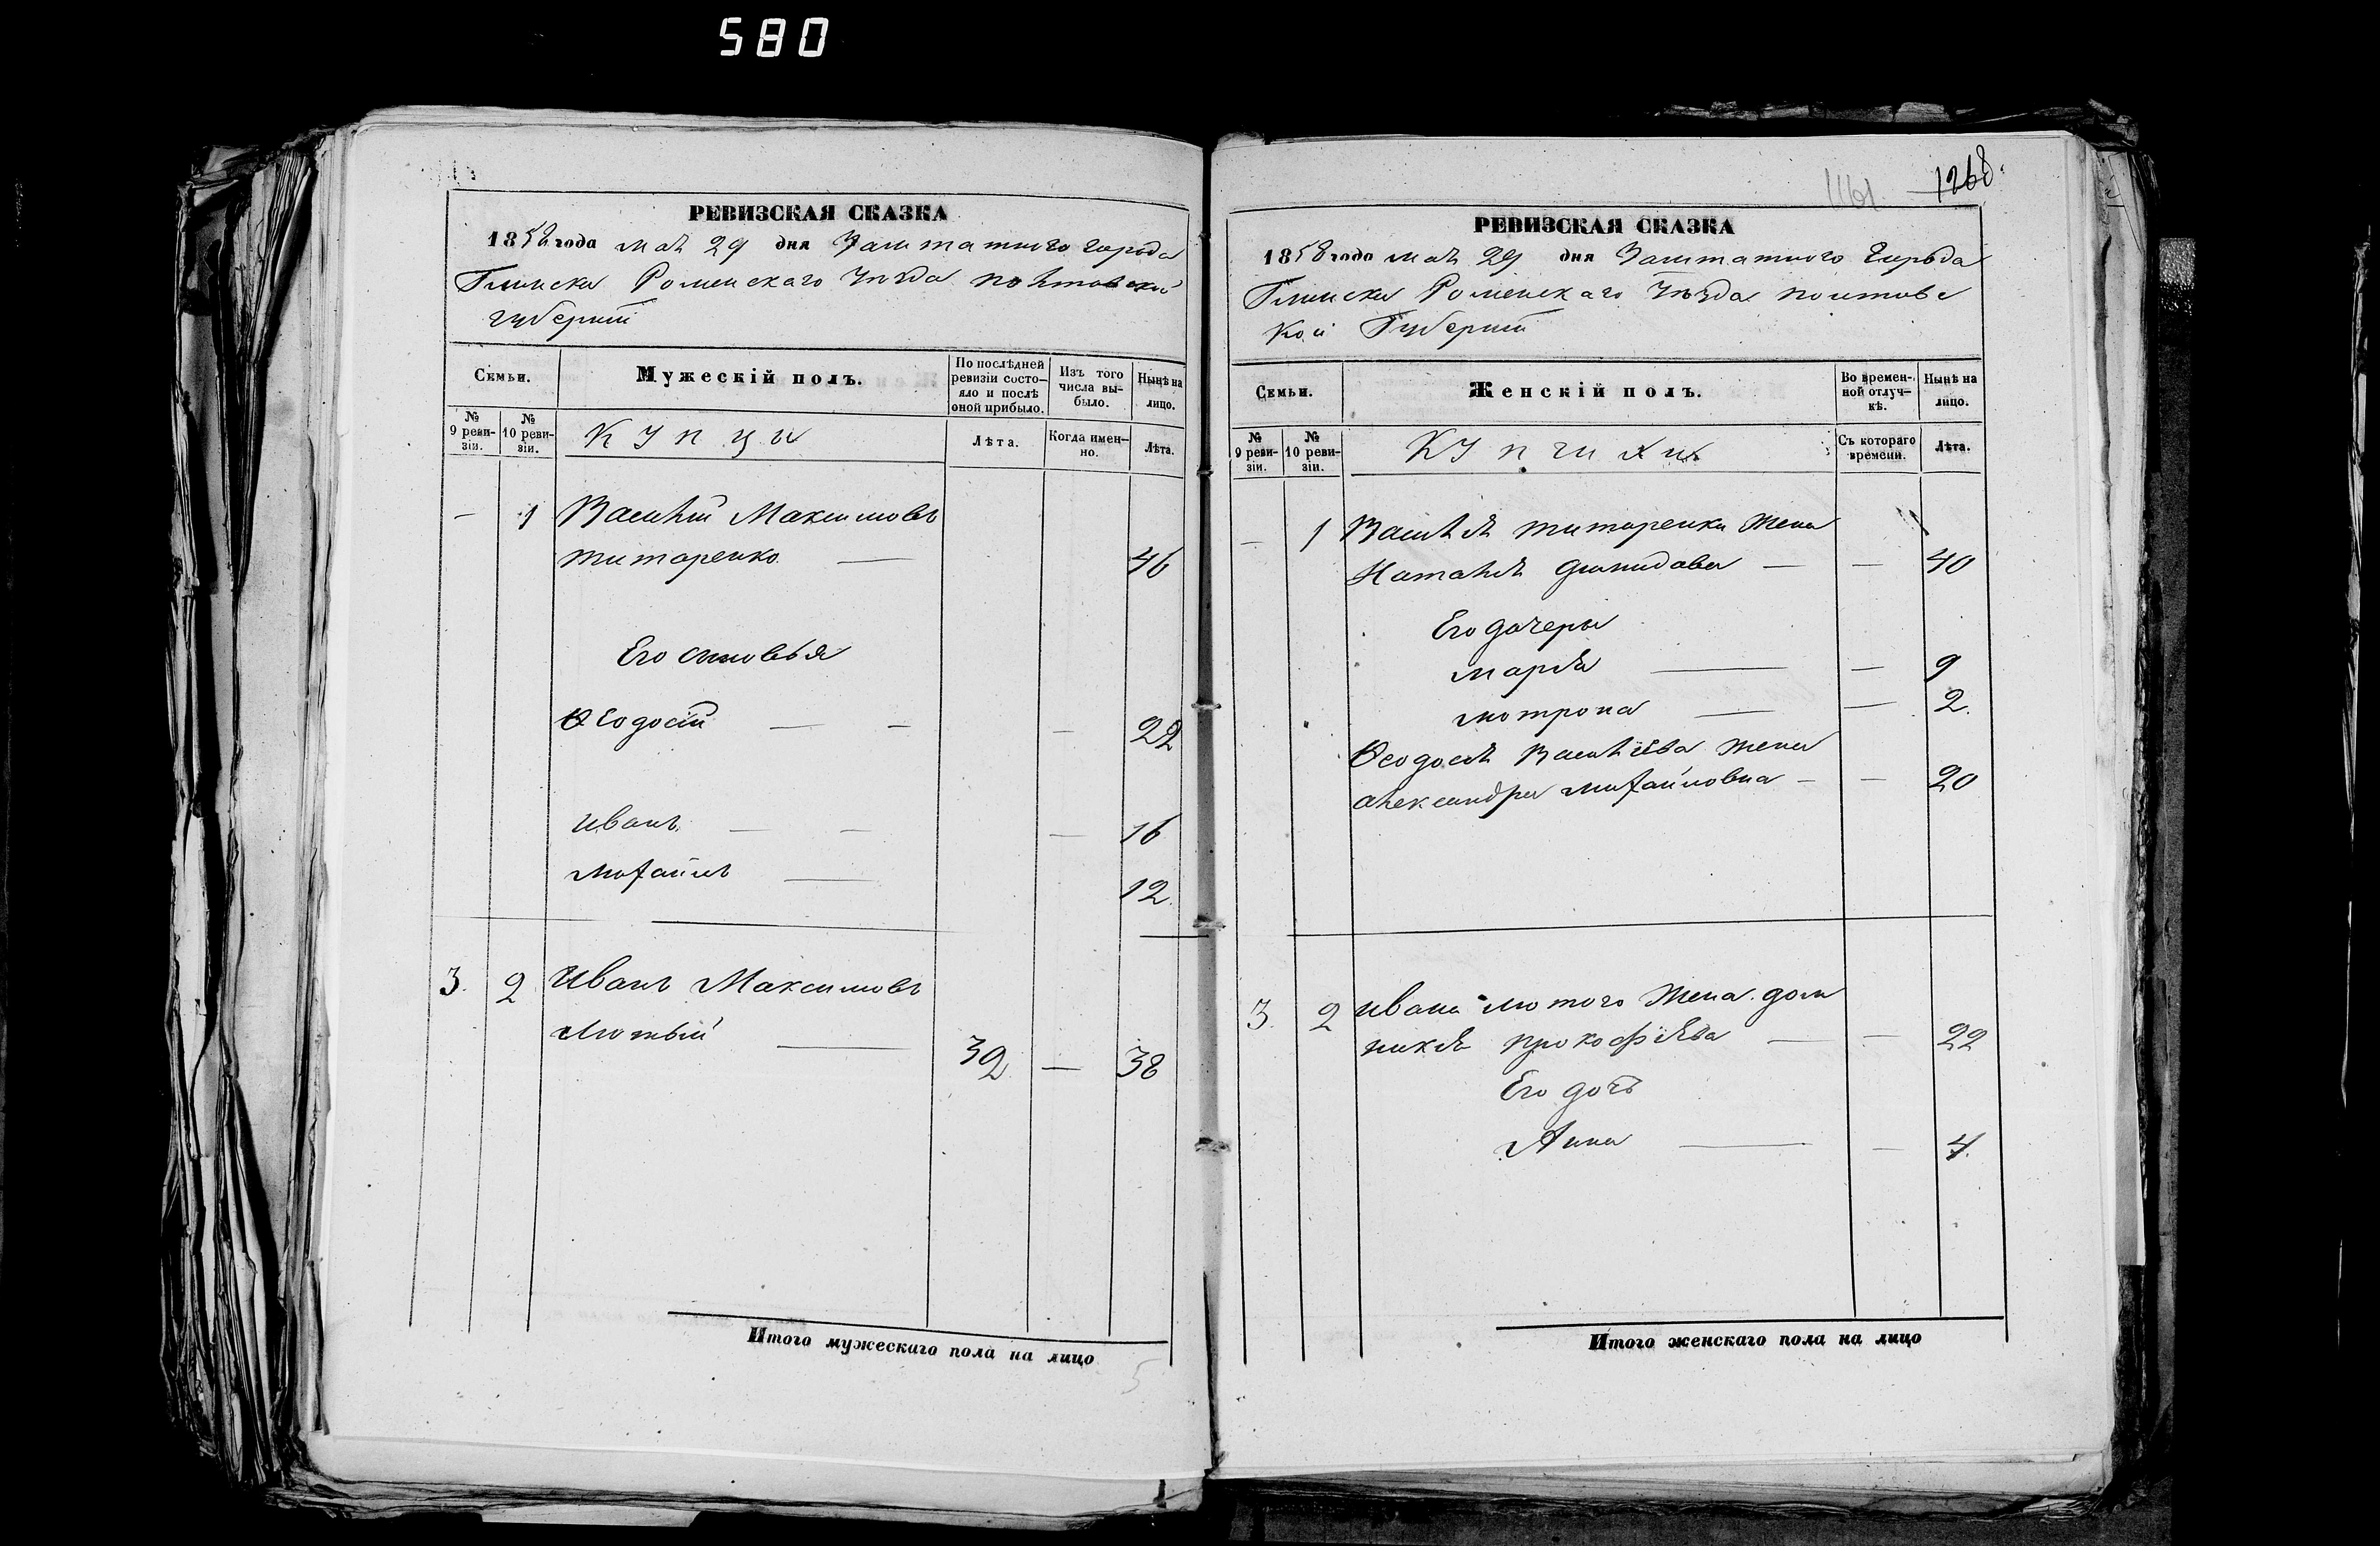 580
РЕВИЗСКАЯ СКАЗКА
1858 года маія 29 дня Заштатного города
Глинска Роменскаго Уѣзда полтавской
губерніи
Семьи.
Мужескій полъ.
По послѣдней ревизіи состояло и послѣ оной прибыло.
Изъ того числа выбыло.
Нынѣ на лицо.
№ 9 ревизіи.
№ 10 ревизіи.
Купцы
Лѣта.
Когда именно.
Лѣта.
— 1 Василій Максимовъ
титаренко — 46
Его сыновья
Ѳеодосій — — — 22
иванъ — — — 16
михаилъ — 12
3. 2 Иванъ Максимовъ
Лютый — 32 — 38
Итого мужескаго пола на лицо
5
1161 1268.
РЕВИЗСКАЯ СКАЗКА
1858 года маія 29 дня Заштатного Города
Глинска Роменскаго Уѣзда полтавс
кой Губерніи
Семьи.
Женскій полъ.
Во временной отлучкѣ.
Нынѣ на лицо.
№ 9 ревизіи.
№ 10 ревизіи.
Купчихи
Съ котораго времени.
Лѣта.
— 1 Василія титаренка жена
Наталія — — 40
Его дочери
марія — — 9
мотрона — — 2.
Ѳеодосія Василіева жена
александра михайловна — — 20
3. 2 ивана лютого жена дом
никія прокофіева — — 22
Его дочь
Анна — — 4.
Итого женскаго пола на лицо